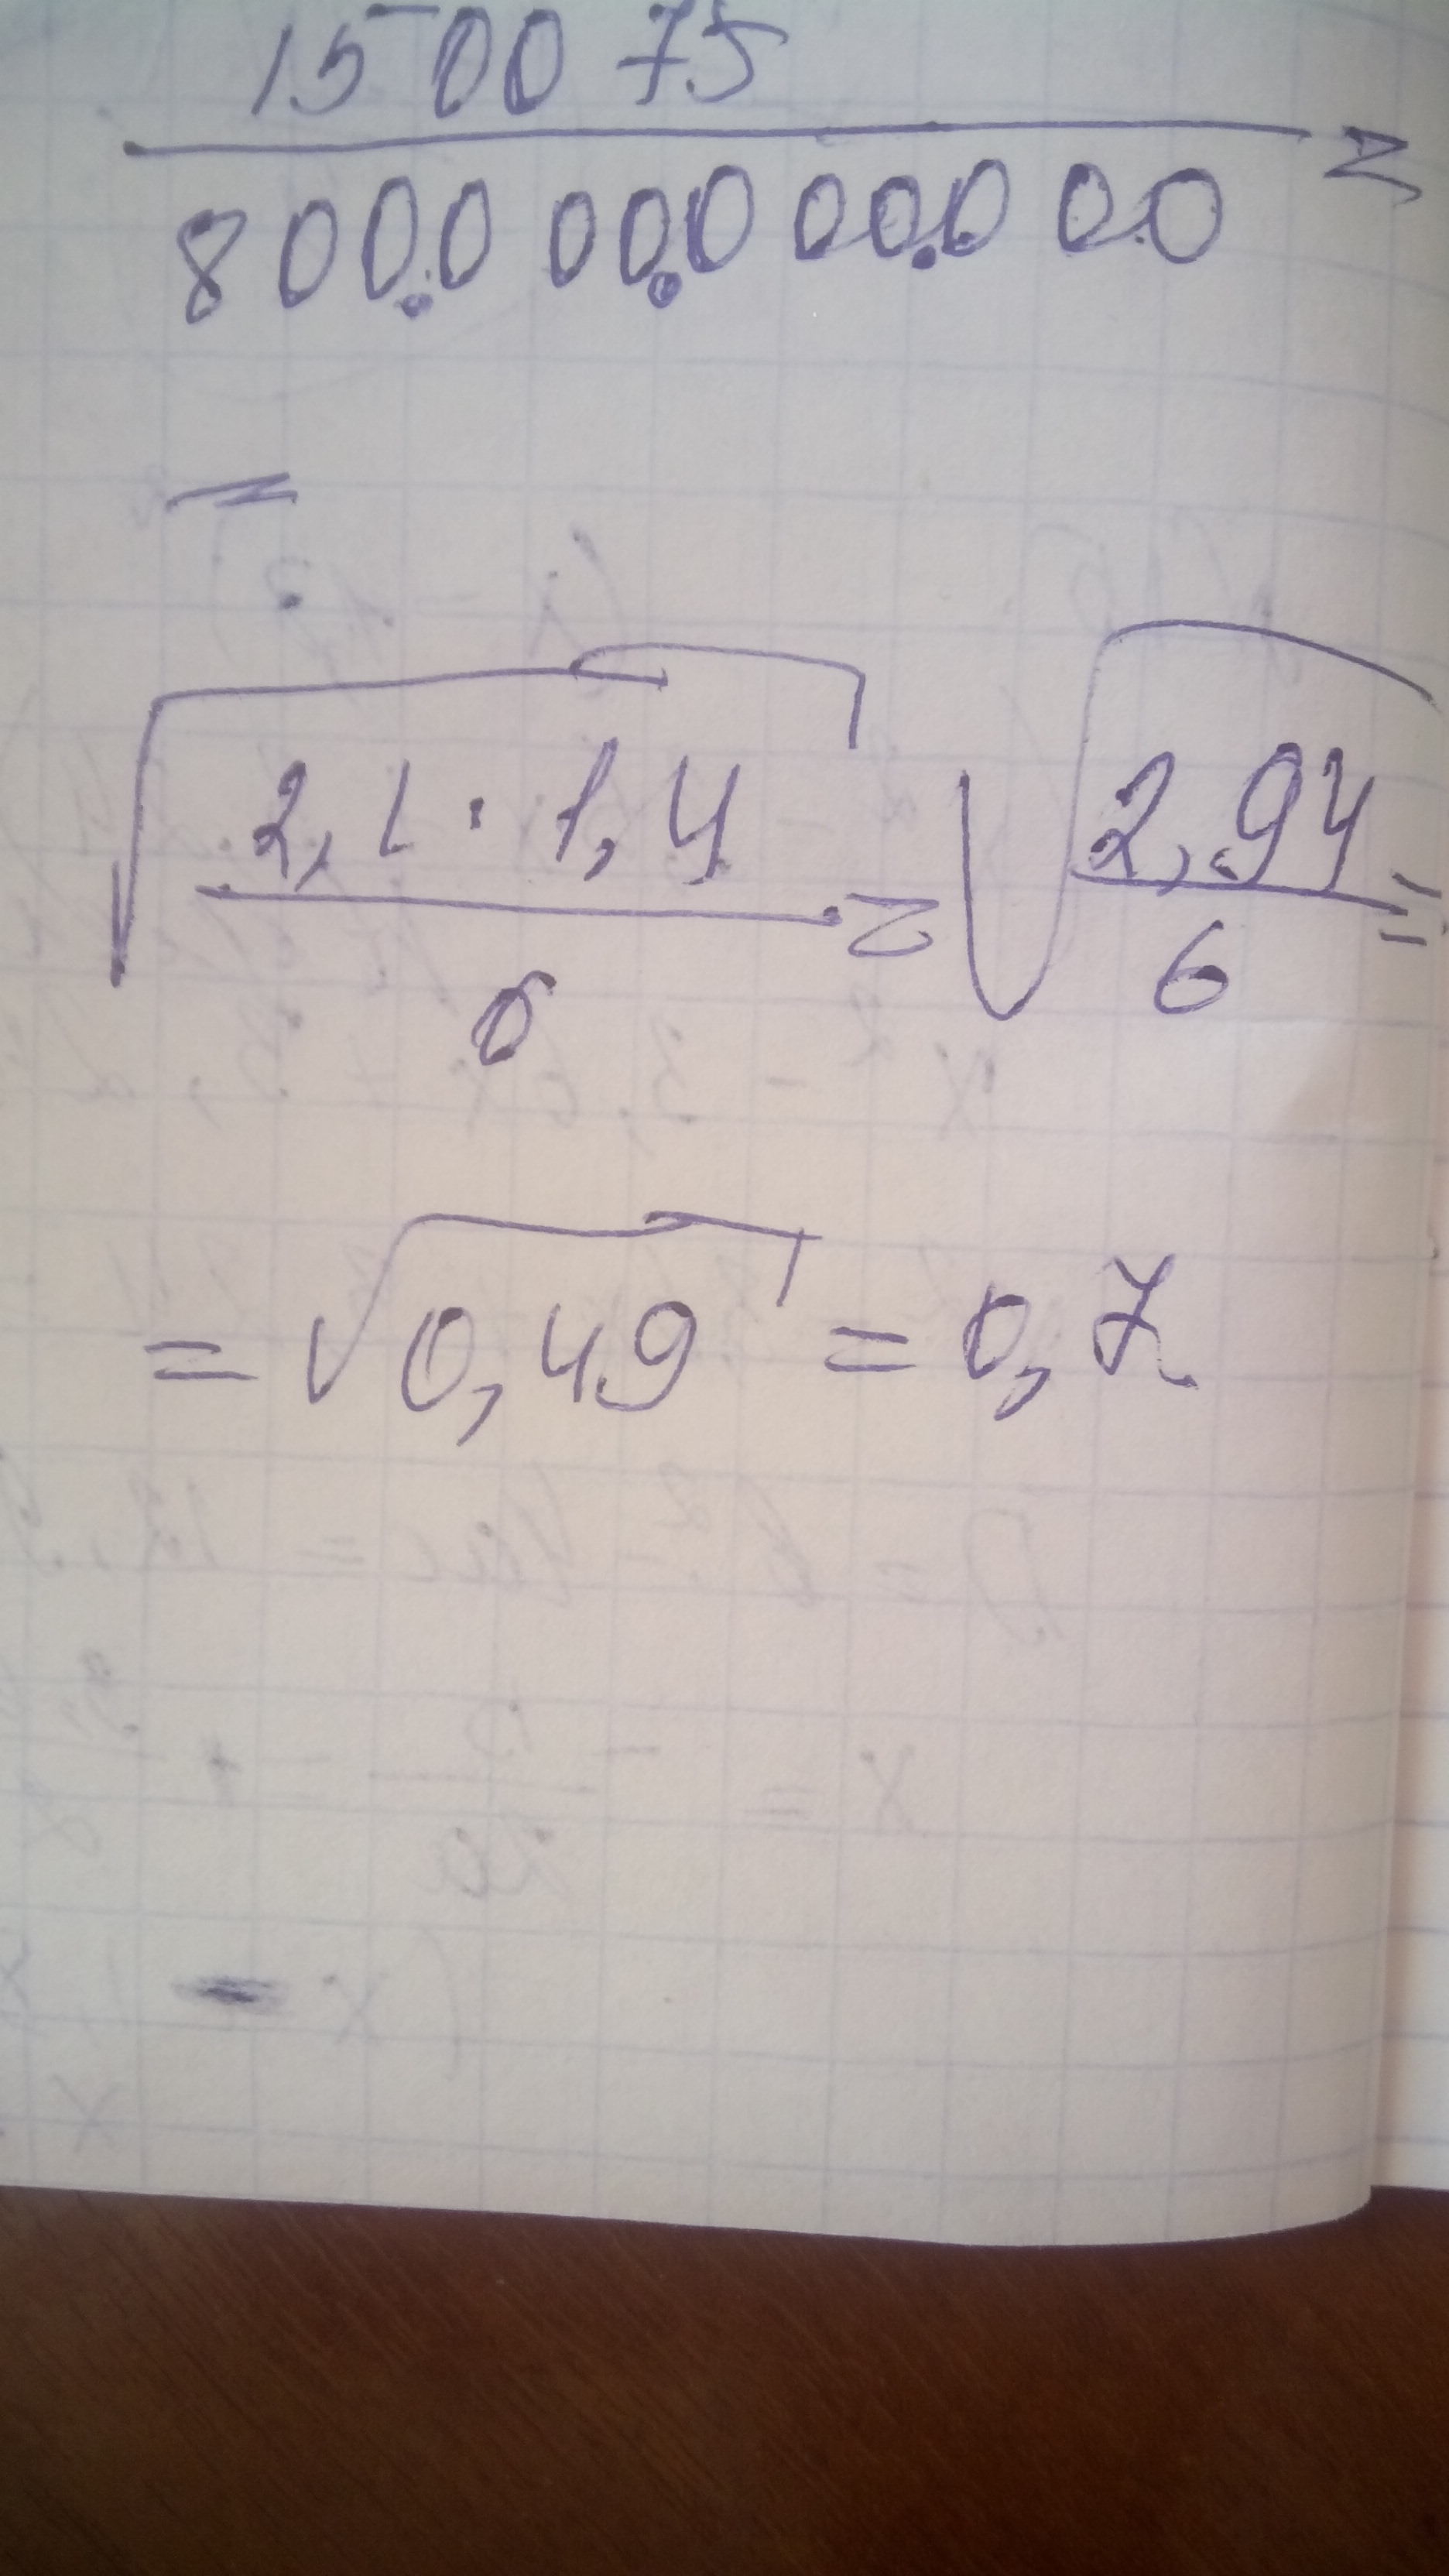 150075
800000000000 =
=
√(2,1 · 1,4 / 6) = √(2,94 / 6) =
= √0,49 = 0,7